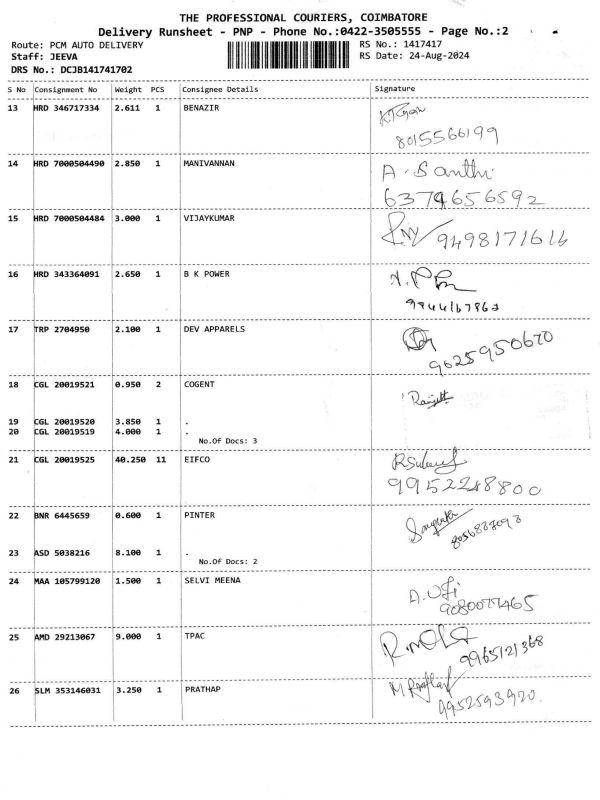 THE PROFESSIONAL COURIERS, COIMBATORE
Delivery Runsheet - PNP - Phone No.:0422-3505555 - Page No.:2
Route: PCM AUTO DELIVERY RS No.: 1417417
Staff: JEEVA RS Date: 24-Aug-2024
DRS No.: DCJB141741702
S No Consignment No Weight PCS Consignee Details Signature
13 HRD 346717334 2.611 1 BENAZIR
8015566199
14 HRD 7000504490 2.850 1 MANIVANNAN A. Santhi
6374656592
15 HRD 7000504484 3.000 1 VIJAYKUMAR
16 HRD 343364091 2.650 1 B K POWER
17 TRP 2704950 2.100 1 DEV APPARELS
9625950670
18 CGL 20019521 0.950 2 COGENT
19 CGL 20019520 3.850 1 .
20 CGL 20019519 4.000 1 .
No.Of Docs: 3
21 CGL 20019525 40.250 11 EIFCO
9952248800
22 BNR 6445659 0.600 1 PINTER
23 ASD 5038216 8.100 1 .
No.Of Docs: 2
24 MAA 105799120 1.500 1 SELVI MEENA
25 AMD 29213067 9.000 1 TPAC
9965121368
26 SLM 353146031 3.250 1 PRATHAP
9952593920.